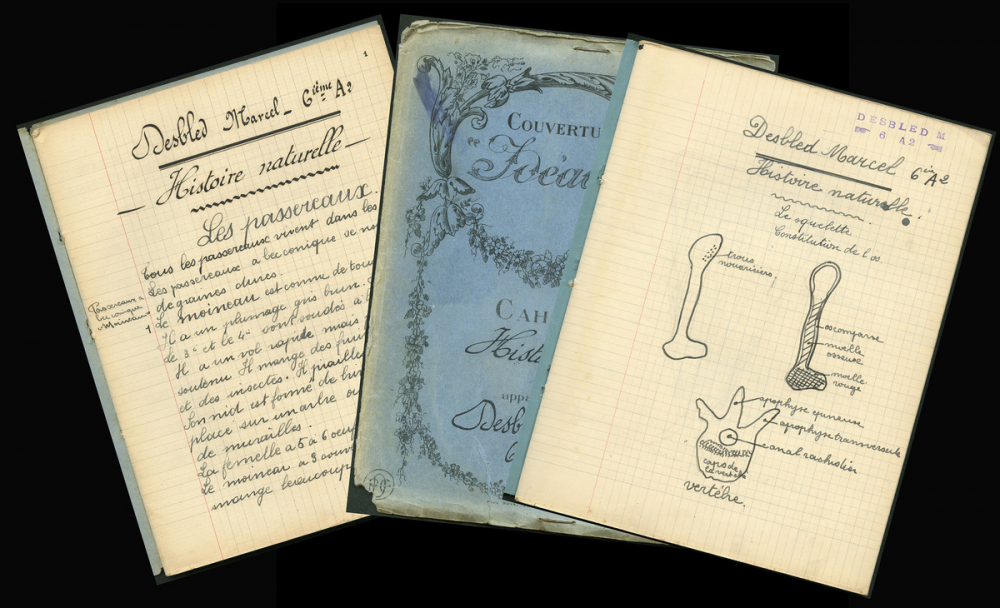 1
Desbled Marcel – 6ième A2
– Histoire naturelle –
Les passereaux.
Tous les passereaux vivent dans les
Les passereaux à bec conique se no
de graines dures.
Le moineau est connu de tous
Il a un plumage gris brun.
le 3e et le 4e sont soudés à
Il a un vol rapide mais
soutenu. Il mange des fru
et des insectes. Il piaille
Son nid est formé de
placé sur un arbre ou
de murailles.
La femelle a 5 à 6 oeuf
Le moineau a 3 couv
mange beaucoup
Passereaux à
bec conique
Moineau
1
COUVERTU
Idéa
CAH
Histo
appa
Desb
6
P.C.
DESBLED M
6 A2
Desbled Marcel 6ie A2
Histoire naturelle.
Le squelette
Constitution de l'os
trous
nourriciers.
moelle
osseuse
moelle
rouge
apophyse épineuse
apophyse transversale
canal rachidien
corps de
la vertèbre
vertèbre.